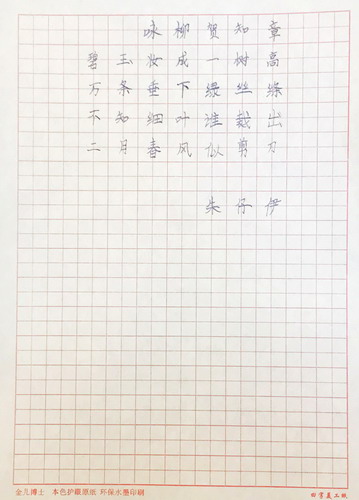 咏柳贺知章
碧玉妆成一树高
万条垂下绿丝绦
不知细叶谁裁出
二月春风似剪刀
朱仔伊
金凡博士 本色护眼原纸 环保水墨印刷